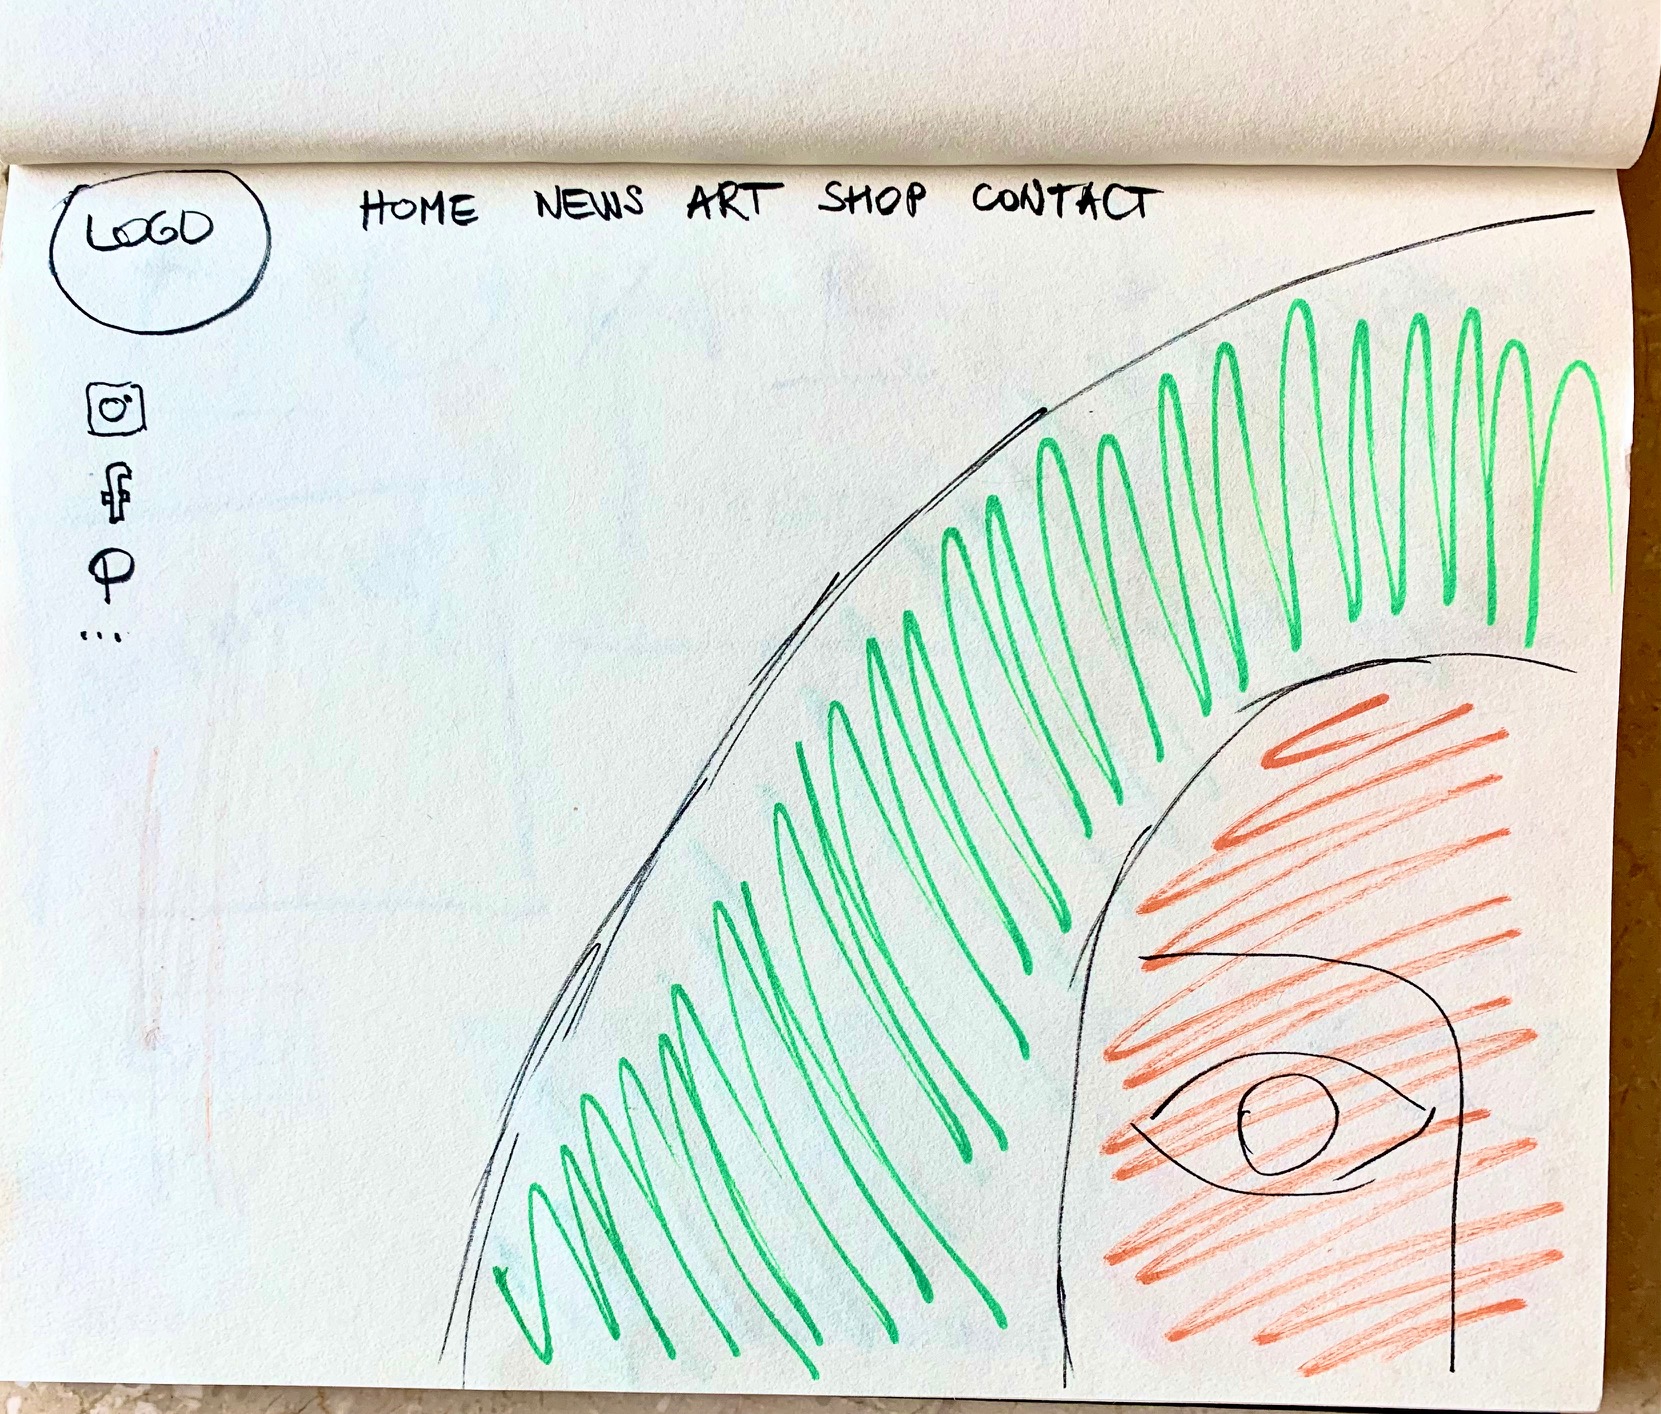 LOGO
HOME NEWS ART SHOP CONTACT
f
...